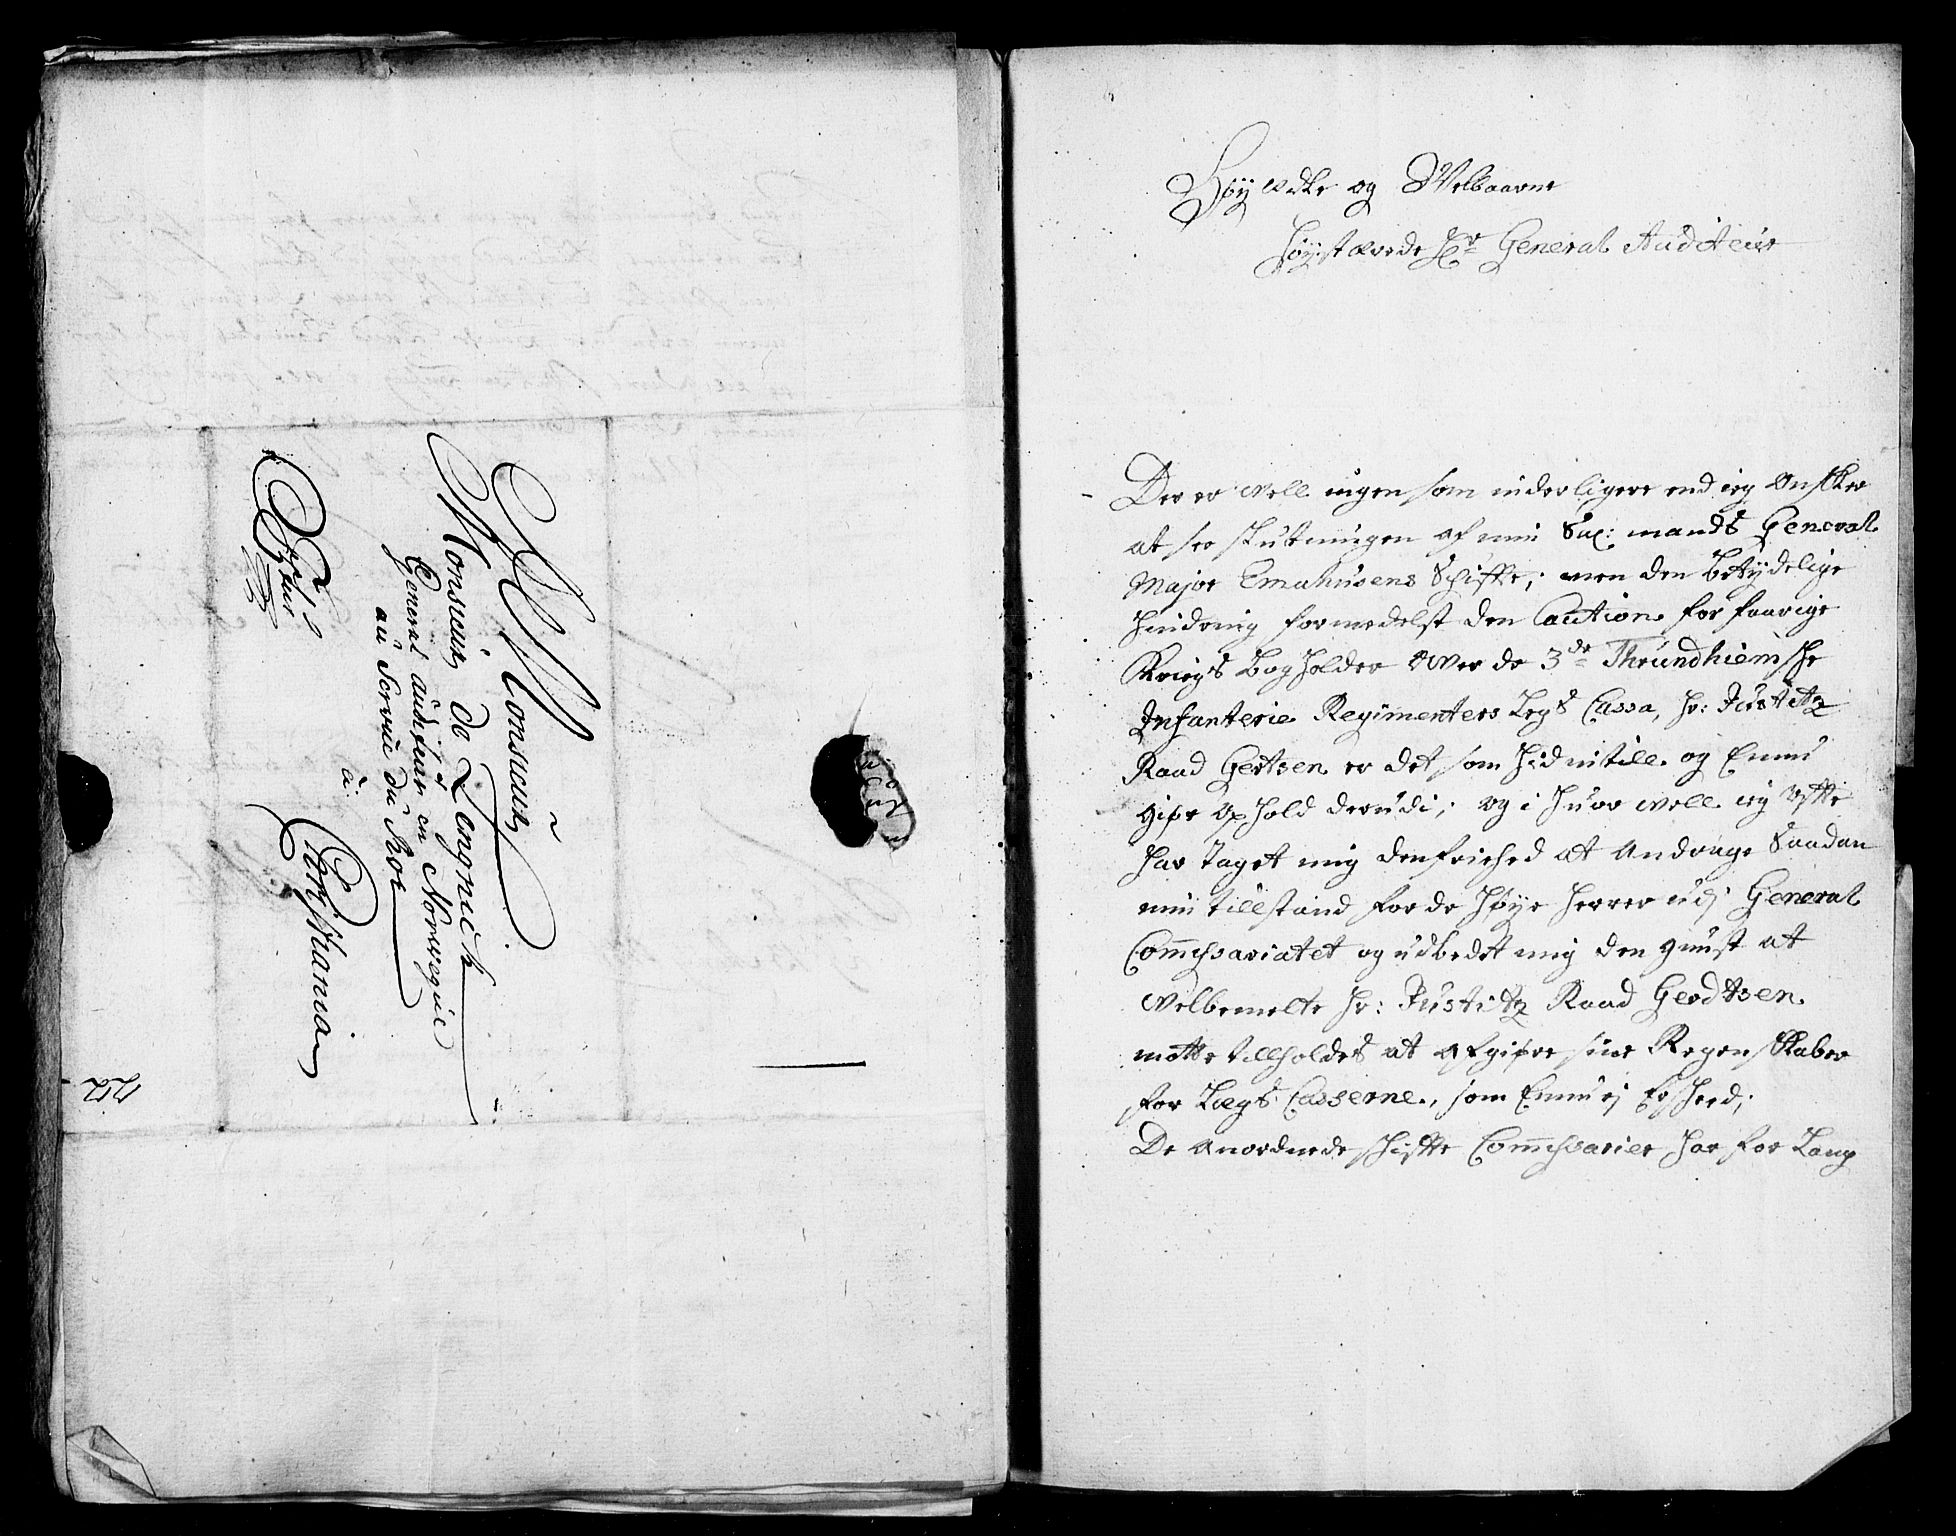 A Monsieur
Monsieur de Zogneck
General auditeur en Norvegue
au Service du Roi
à
Christiania
22
Høyædle og Welbaarne
Høystærede Hr General Auditeur
Der er well ingen som inderligere end ieg ønsker
at see slutningen af min Sal: mands General
Major Emahusens Schifte; men den betÿdelige
hindring formedelst den Caution for forrige
Krigs Bogholder over de 3de Thrundhiemsche
Infanterie Regimenters Legs Cassa, Hr: Justitz
Raad Gertsen er det som hidindtill og Ennu
gifve ophold derudi; og i huor well ieg ofte
har Taget mig den frihed at Andrage Saadan
min tillstand for de høye Herrer udj General
Commissariatet og udbedet mig den gunst at
welbemelte Hr: Justitz Raad Gerdtsen
motte tillholdes at afgifve sine Regenskaber
for Lægs Casserne, som Ennu ej Er skeed;
De Anordnede schifte Commissarier har for Lang